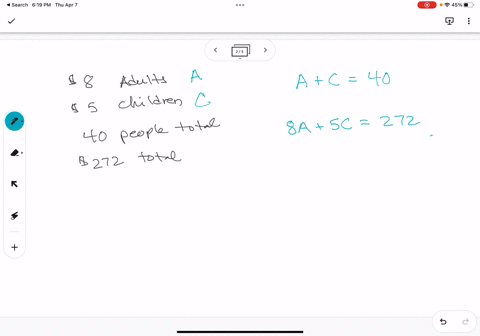 Search 6:19 PM Thu Apr 7
45%
3/3
$8 Adults A
$5 children C
40 people total
$272 total
A + C = 40
8A + 5C = 272